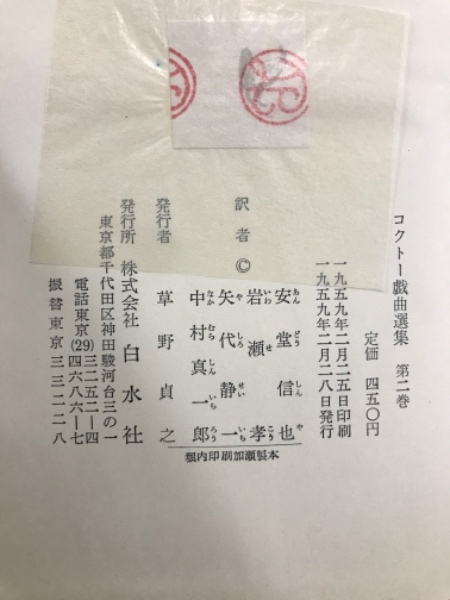 コクトー戯曲選集 第二巻
定価 四五〇円
一九五九年二月二五日印刷
一九五九年二月二八日発行
訳者 © 安堂信也
岩瀬孝
矢代静一
中村真一郎
発行者 草野貞之
発行所 株式会社 白水社
東京都千代田区神田駿河台三の一
電話東京(29)三二五二—四
四六八六—七
振替東京三三二二八
堀内印刷加瀬製本